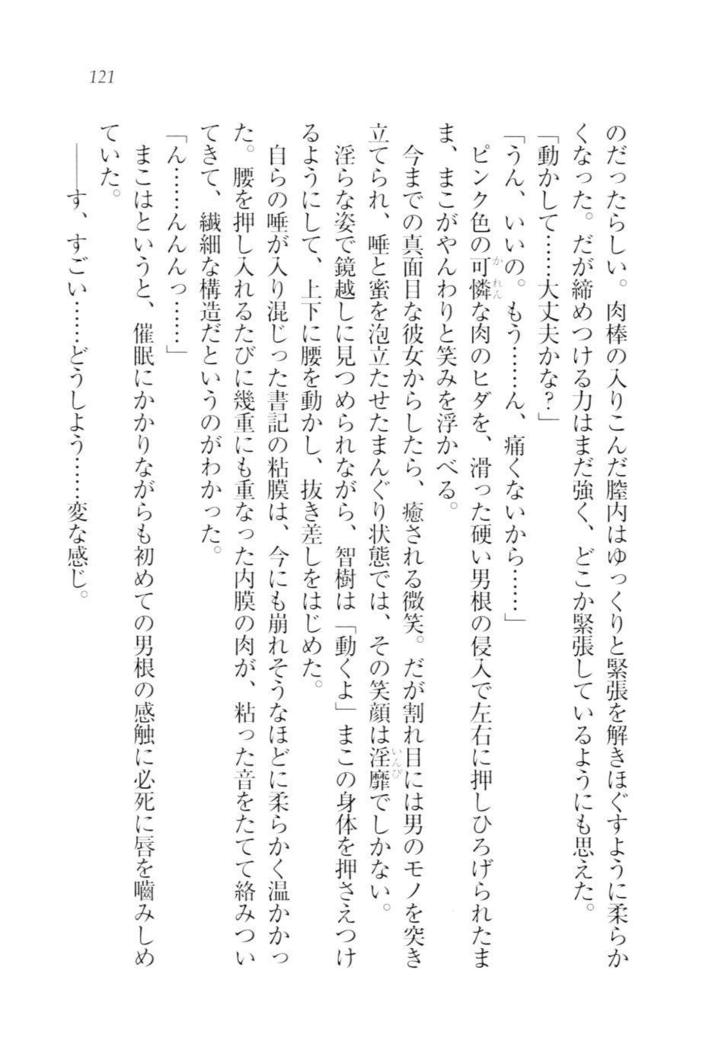 121
のだったらしい。肉棒の入りこんだ膣内はゆっくりと緊張を解きほぐすように柔らか
くなった。だが締めつける力はまだ強く、どこか緊張しているようにも思えた。
「動かして……大丈夫かな？」
「うん、いいの。もう……ん、痛くないから……」
ピンク色の可憐な肉のヒダを、滑った硬い男根の侵入で左右に押しひろげられたま
ま、まこがやんわりと笑みを浮かべる。
今までの真面目な彼女からしたら、癒される微笑。だが割れ目には男のモノを突き
立てられ、唾と蜜を泡立たせたまんぐり状態では、その笑顔は淫靡でしかない。
淫らな姿で鏡越しに見つめられながら、智樹は「動くよ」まこの身体を押さえつけ
るようにして、上下に腰を動かし、抜き差しをはじめた。
自らの唾が入り混じった書記の粘膜は、今にも崩れそうなほどに柔らかく温かかっ
た。腰を押し入れるたびに幾重にも重なった内膜の肉が、粘った音をたてて絡みつい
てきて、繊細な構造だというのがわかった。
「ん……んんんっ……」
まこはというと、催眠にかかりながらも初めての男根の感触に必死に唇を嚙みしめ
ていた。
――す、すごい……どうしよう……変な感じ。